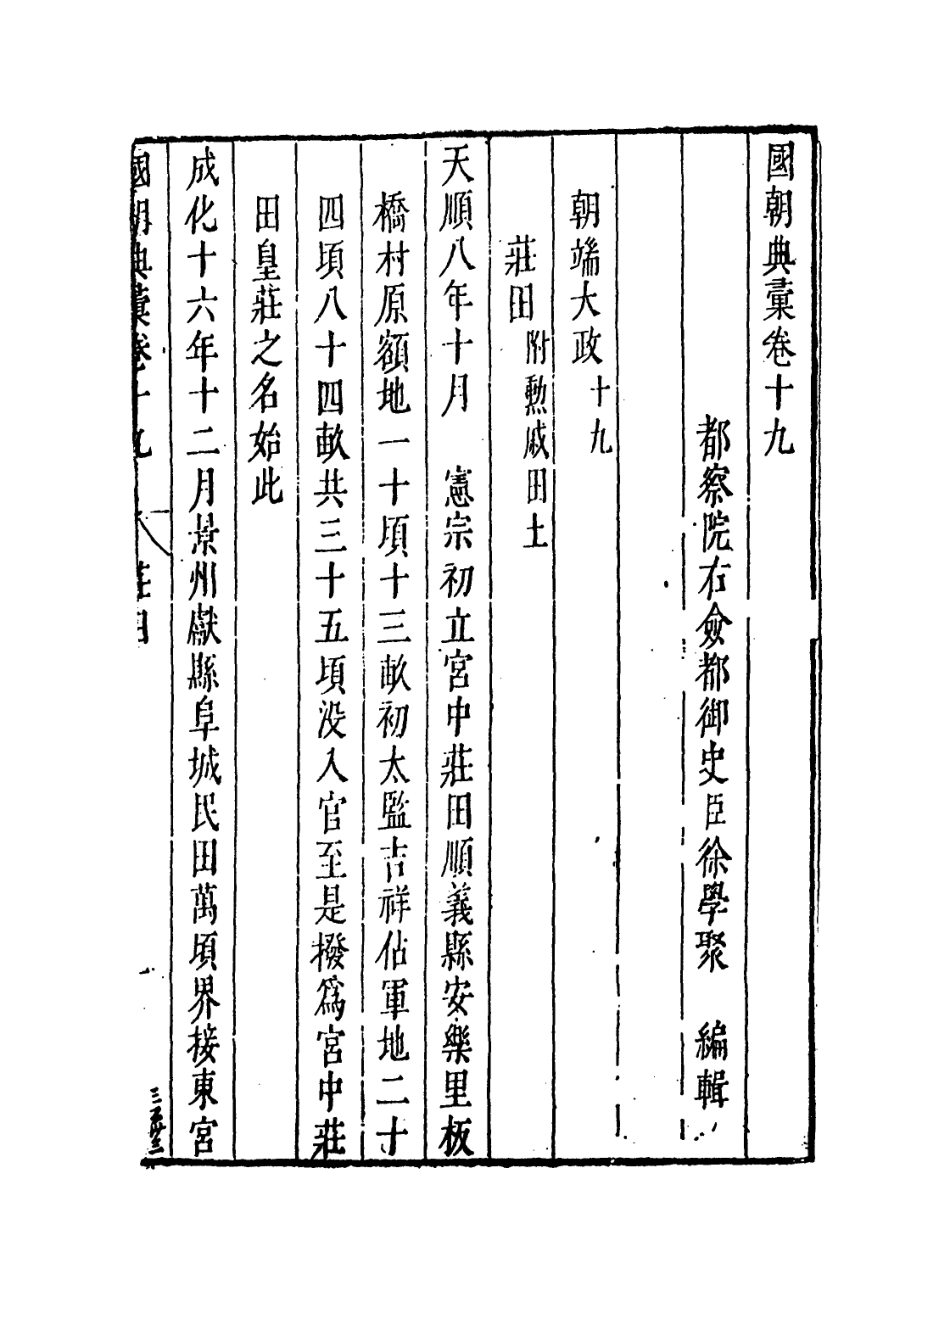 國朝典彙卷十九
都察院右僉都御史臣徐學聚　編輯
朝端大政十九
莊田附勲戚田土
天順八年十月　憲宗初立宮中莊田順義縣安樂里板
橋村原額地一十頃十三畝初太監吉祥佔軍地二十
四頃八十四畝共三十五頃没入官至是撥爲宮中莊
田皇莊之名始此
成化十六年十二月景州獻縣阜城民田萬頃界接東宮
國朝典彙卷十九　莊田